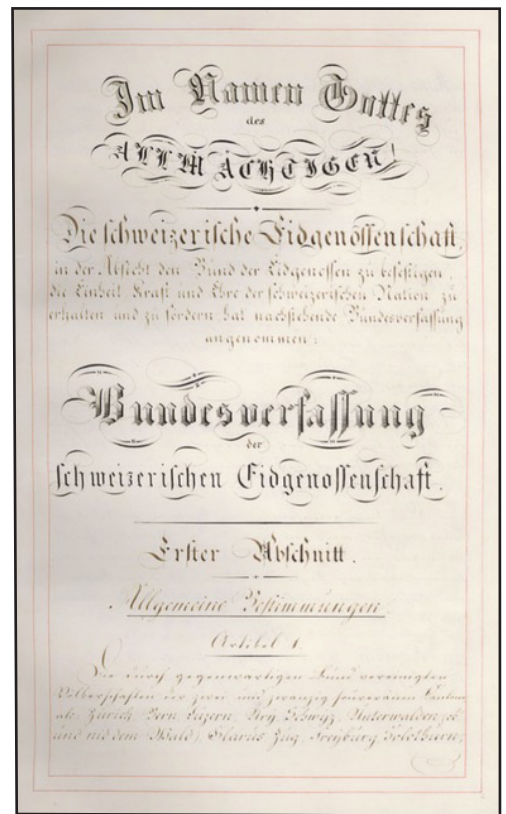 Im Namen Gottes
des
ALLMÄCHTIGEN!
Die schweizerische Eidgenossenschaft,
in der Absicht den Bund der Eidgenossen zu befestigen,
die Einheit Kraft und Ehre der schweizerischen Nation zu
erhalten und zu fördern, hat nachstehende Bundesverfassung
angenommen:
Bundesverfassung
der
schweizerischen Eidgenossenschaft.
Erster Abschnitt.
Allgemeine Bestimmungen.
Artikel 1.
Die durch gegenwärtigen Bund vereinigten
Völkerschaften der zwei und zwanzig souveränen Kantone
als: Zürich, Bern, Luzern, Ury, Schwyz, Unterwalden, ob
und nid dem Wald, Glarus, Zug, Freyburg, Solothurn,